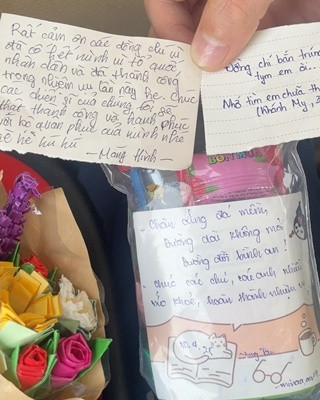 Rất cảm ơn các đồng chí vì
đã cố hết mình vì tổ quốc
nhân dân và đã thành công
trong nhiệm vụ lần này hẹ. Chúc
các chiến sĩ của chúng tôi sẽ
thật thành công và hạnh phúc
với bộ quân phục của mình nhe
hu hu
- Măng Hình -
chỉ bắn trúng
tym em ời..
Nhớ tìm em chưa
(Khánh My, 3
Chân cứng đá mềm,
Đường dài không mỏi
Đường đời bình an!
chúc các chú, các anh nhiều
sức khoẻ, hoàn thành nhiệm vụ